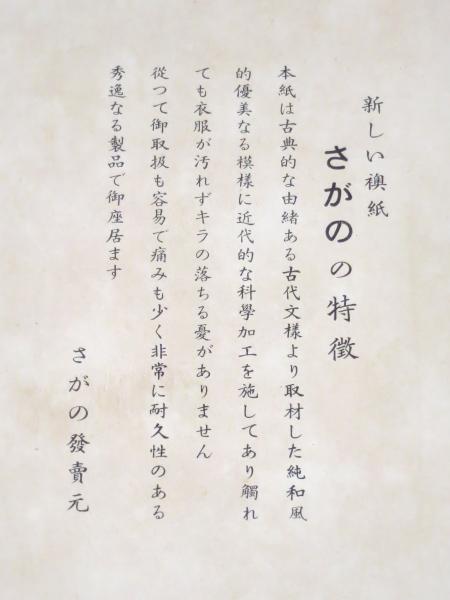 新しい襖紙
さがのの特徴
本紙は古典的な由緒ある古代文様より取材した純和風
的優美なる模様に近代的な科學加工を施してあり觸れ
ても衣服が汚れずキラの落ちる憂がありません
從つて御取扱も容易で痛みも少く非常に耐久性のある
秀逸なる製品で御座居ます
さがの發賣元